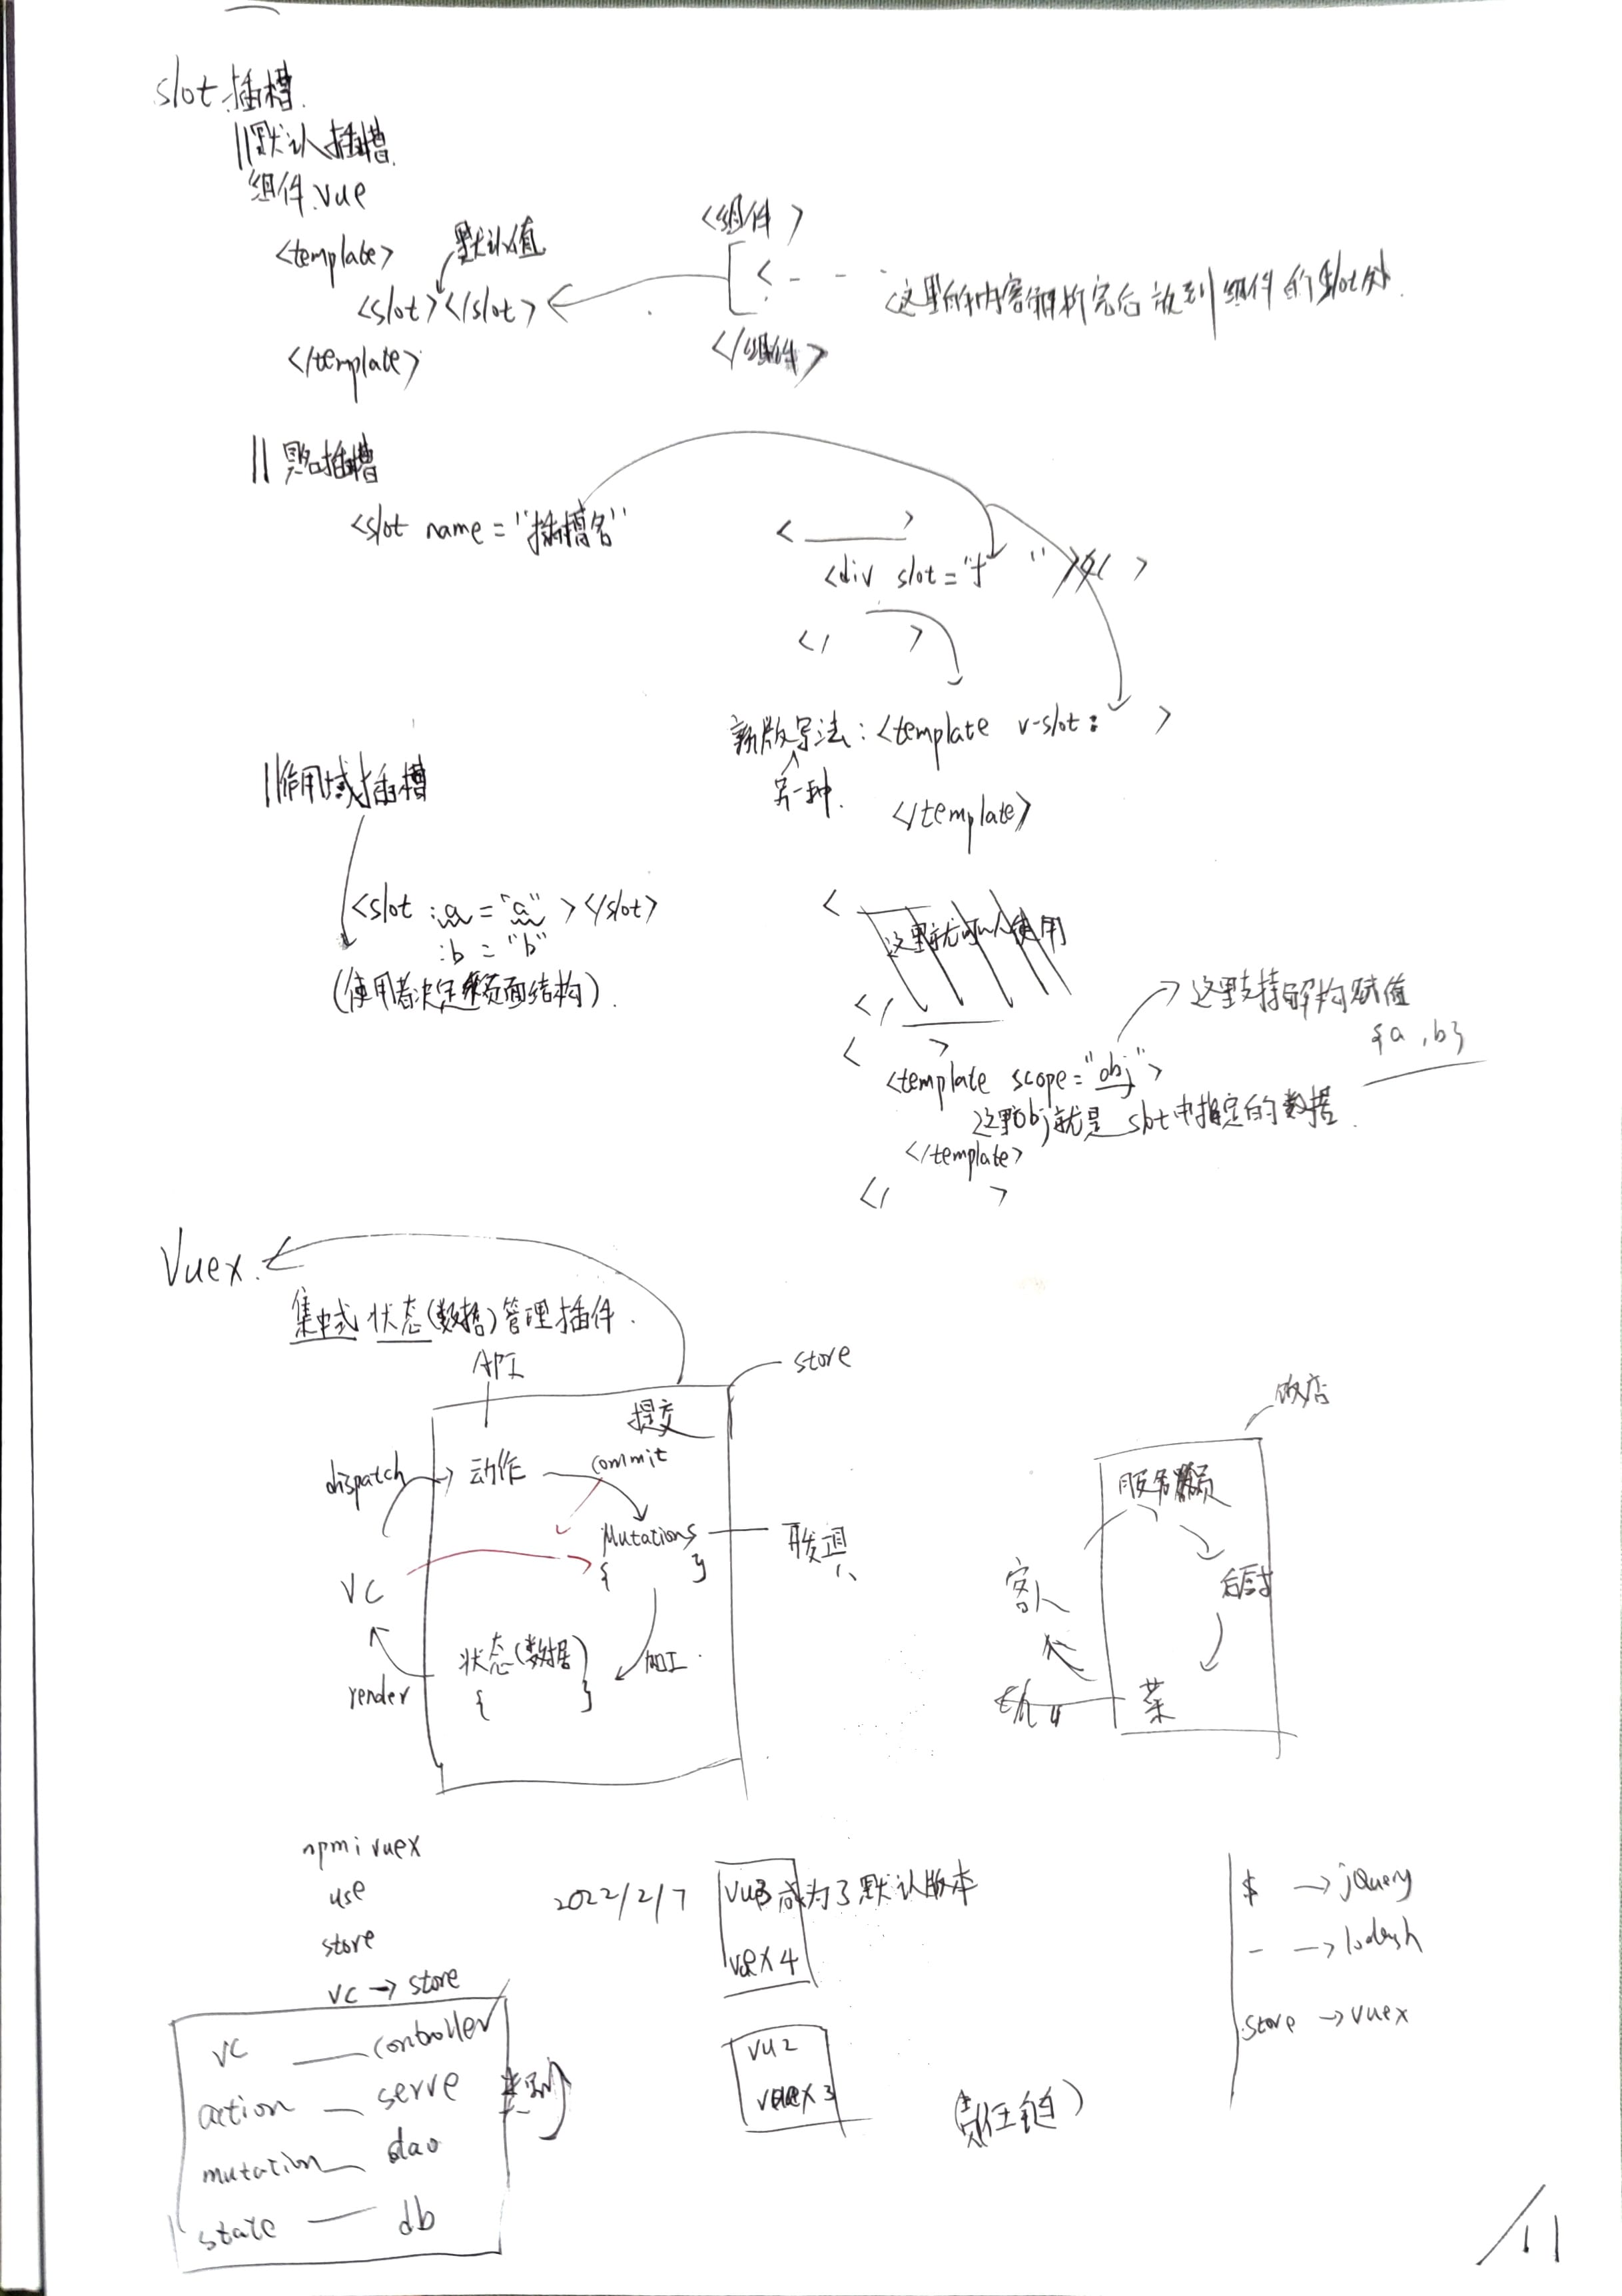 slot 插槽.
||默认插槽
组件.vue
<template> 默认值
<slot></slot>
</template>
<组件>
<- - -
这里的内容解析完后放到组件的slot处.
</组件>
||具名插槽
<slot name="插槽名"
< >
<div slot=" " >
</ >
新版写法: <template v-slot: >
另一种.
</template>
||作用域插槽
<slot :a="a"></slot>
:b="b"
(使用者决定页面结构).
<
这里就可以使用
</
< >
<template scope="obj">
这里支持解构赋值
{a,b}
这里obj就是slot中指定的数据.
</template>
</ >
Vuex.
集中式 状态(数据)管理插件.
API
store
提交
dispatch 动作 commit
Mutations
{ }
VC
状态(数据)
{ }
加工.
render
饭店
服务员
客人
后厨
菜
npm i vuex
use
store
vc → store
2022/2/7 vue3成为了默认版本
vuex4
vu2
vuex3
(责任链)
$ → jQuery
- → lodash
store → vuex
vc — controller
action — serve
mutation — dao
state — db
类似
11